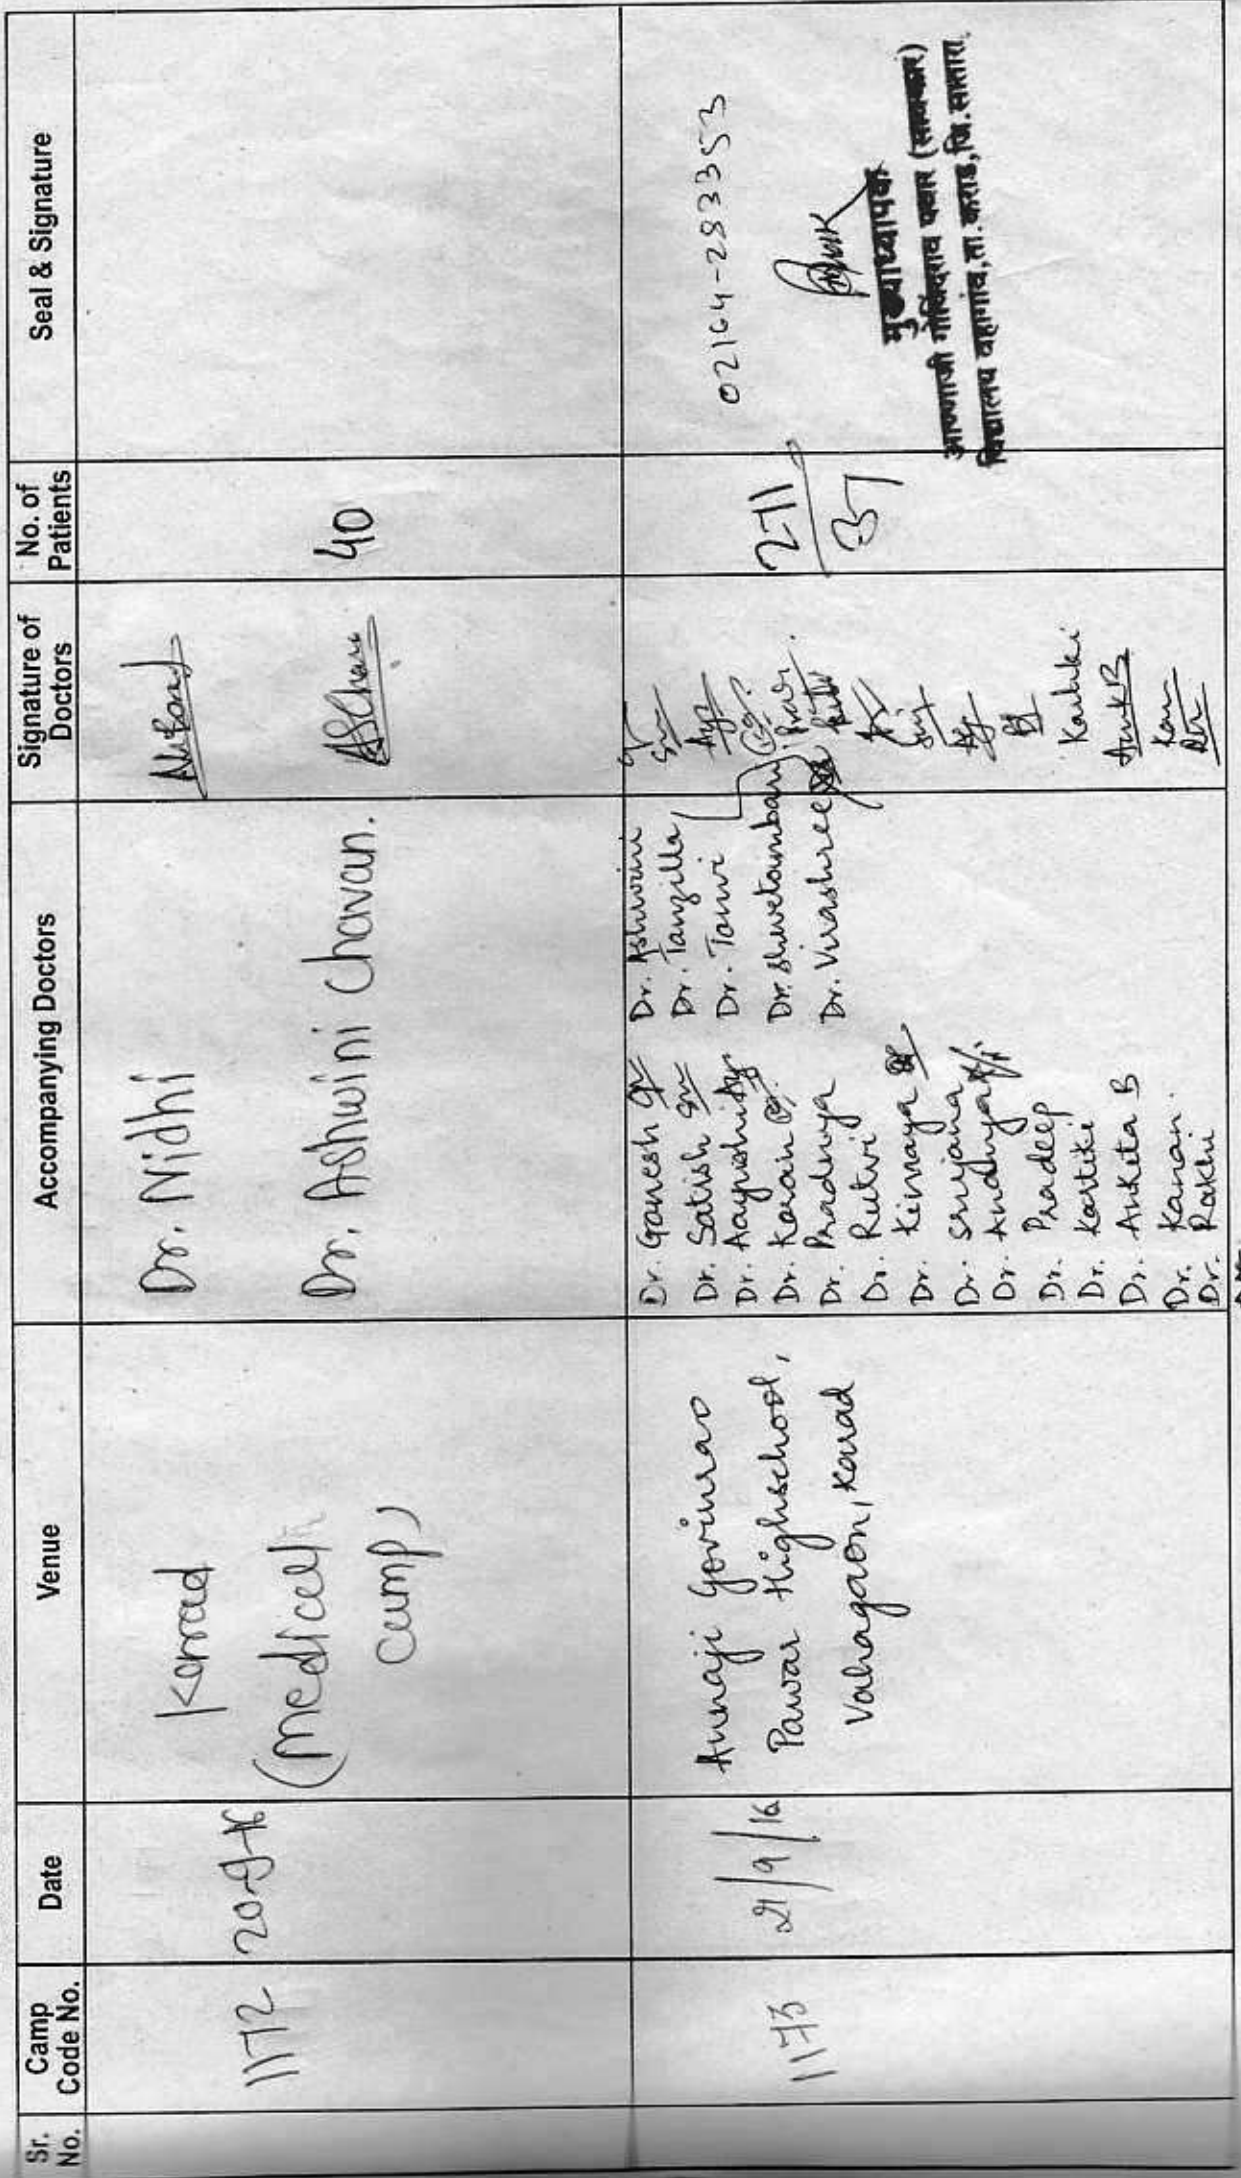 Sr. No.
Camp Code No.
Date
Venue
Accompanying Doctors
Signature of Doctors
No. of Patients
Seal & Signature
1172
20-9-16
Karad
(medical
camp)
Dr. Nidhi
Dr. Ashwini Chavan.
40
1173
21/9/16
Annaji Govinrao
Pawar Highschool,
Vahagaon, Karad
Dr. Ganesh
Dr. Satish
Dr. Aayushi
Dr. Karan
Dr. Pradnya
Dr. Rutvi
Dr. Kimaya
Dr. Srujana
Dr. Andhya
Dr. Pradeep
Dr. Kartiki
Dr. Ankita B
Dr. Kanan.
Dr. Rakhi
Dr. Ashwini
Dr. Tanzilla
Dr. Tanvi
Dr. Shwetambari
Dr. Virashree
Kartiki
271
37
02164-283353
मुख्याध्यापक
आण्णाजी गोविंदराव पवार
विद्यालय वहागांव, ता. कराड, जि. सातारा.